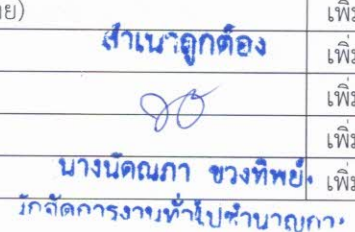 ย) เพิ่ม
สำเนาถูกต้อง เพิ่ม
เพิ่ม
เพิ่ม
นางนัดณภา ขวงทิพย์ เพิ่ม
นักจัดการงานทั่วไปชำนาญการ